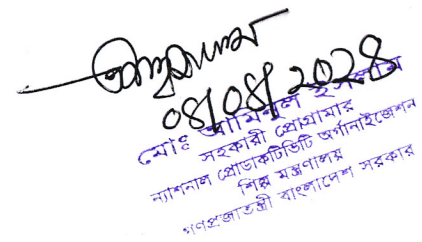 ০৪/০৪/২০২৪
মোঃ আমিনুল ইসলাম
সহকারী প্রোগ্রামার
ন্যাশনাল প্রোডাকটিভিটি অর্গানাইজেশন
শিল্প মন্ত্রণালয়
গণপ্রজাতন্ত্রী বাংলাদেশ সরকার